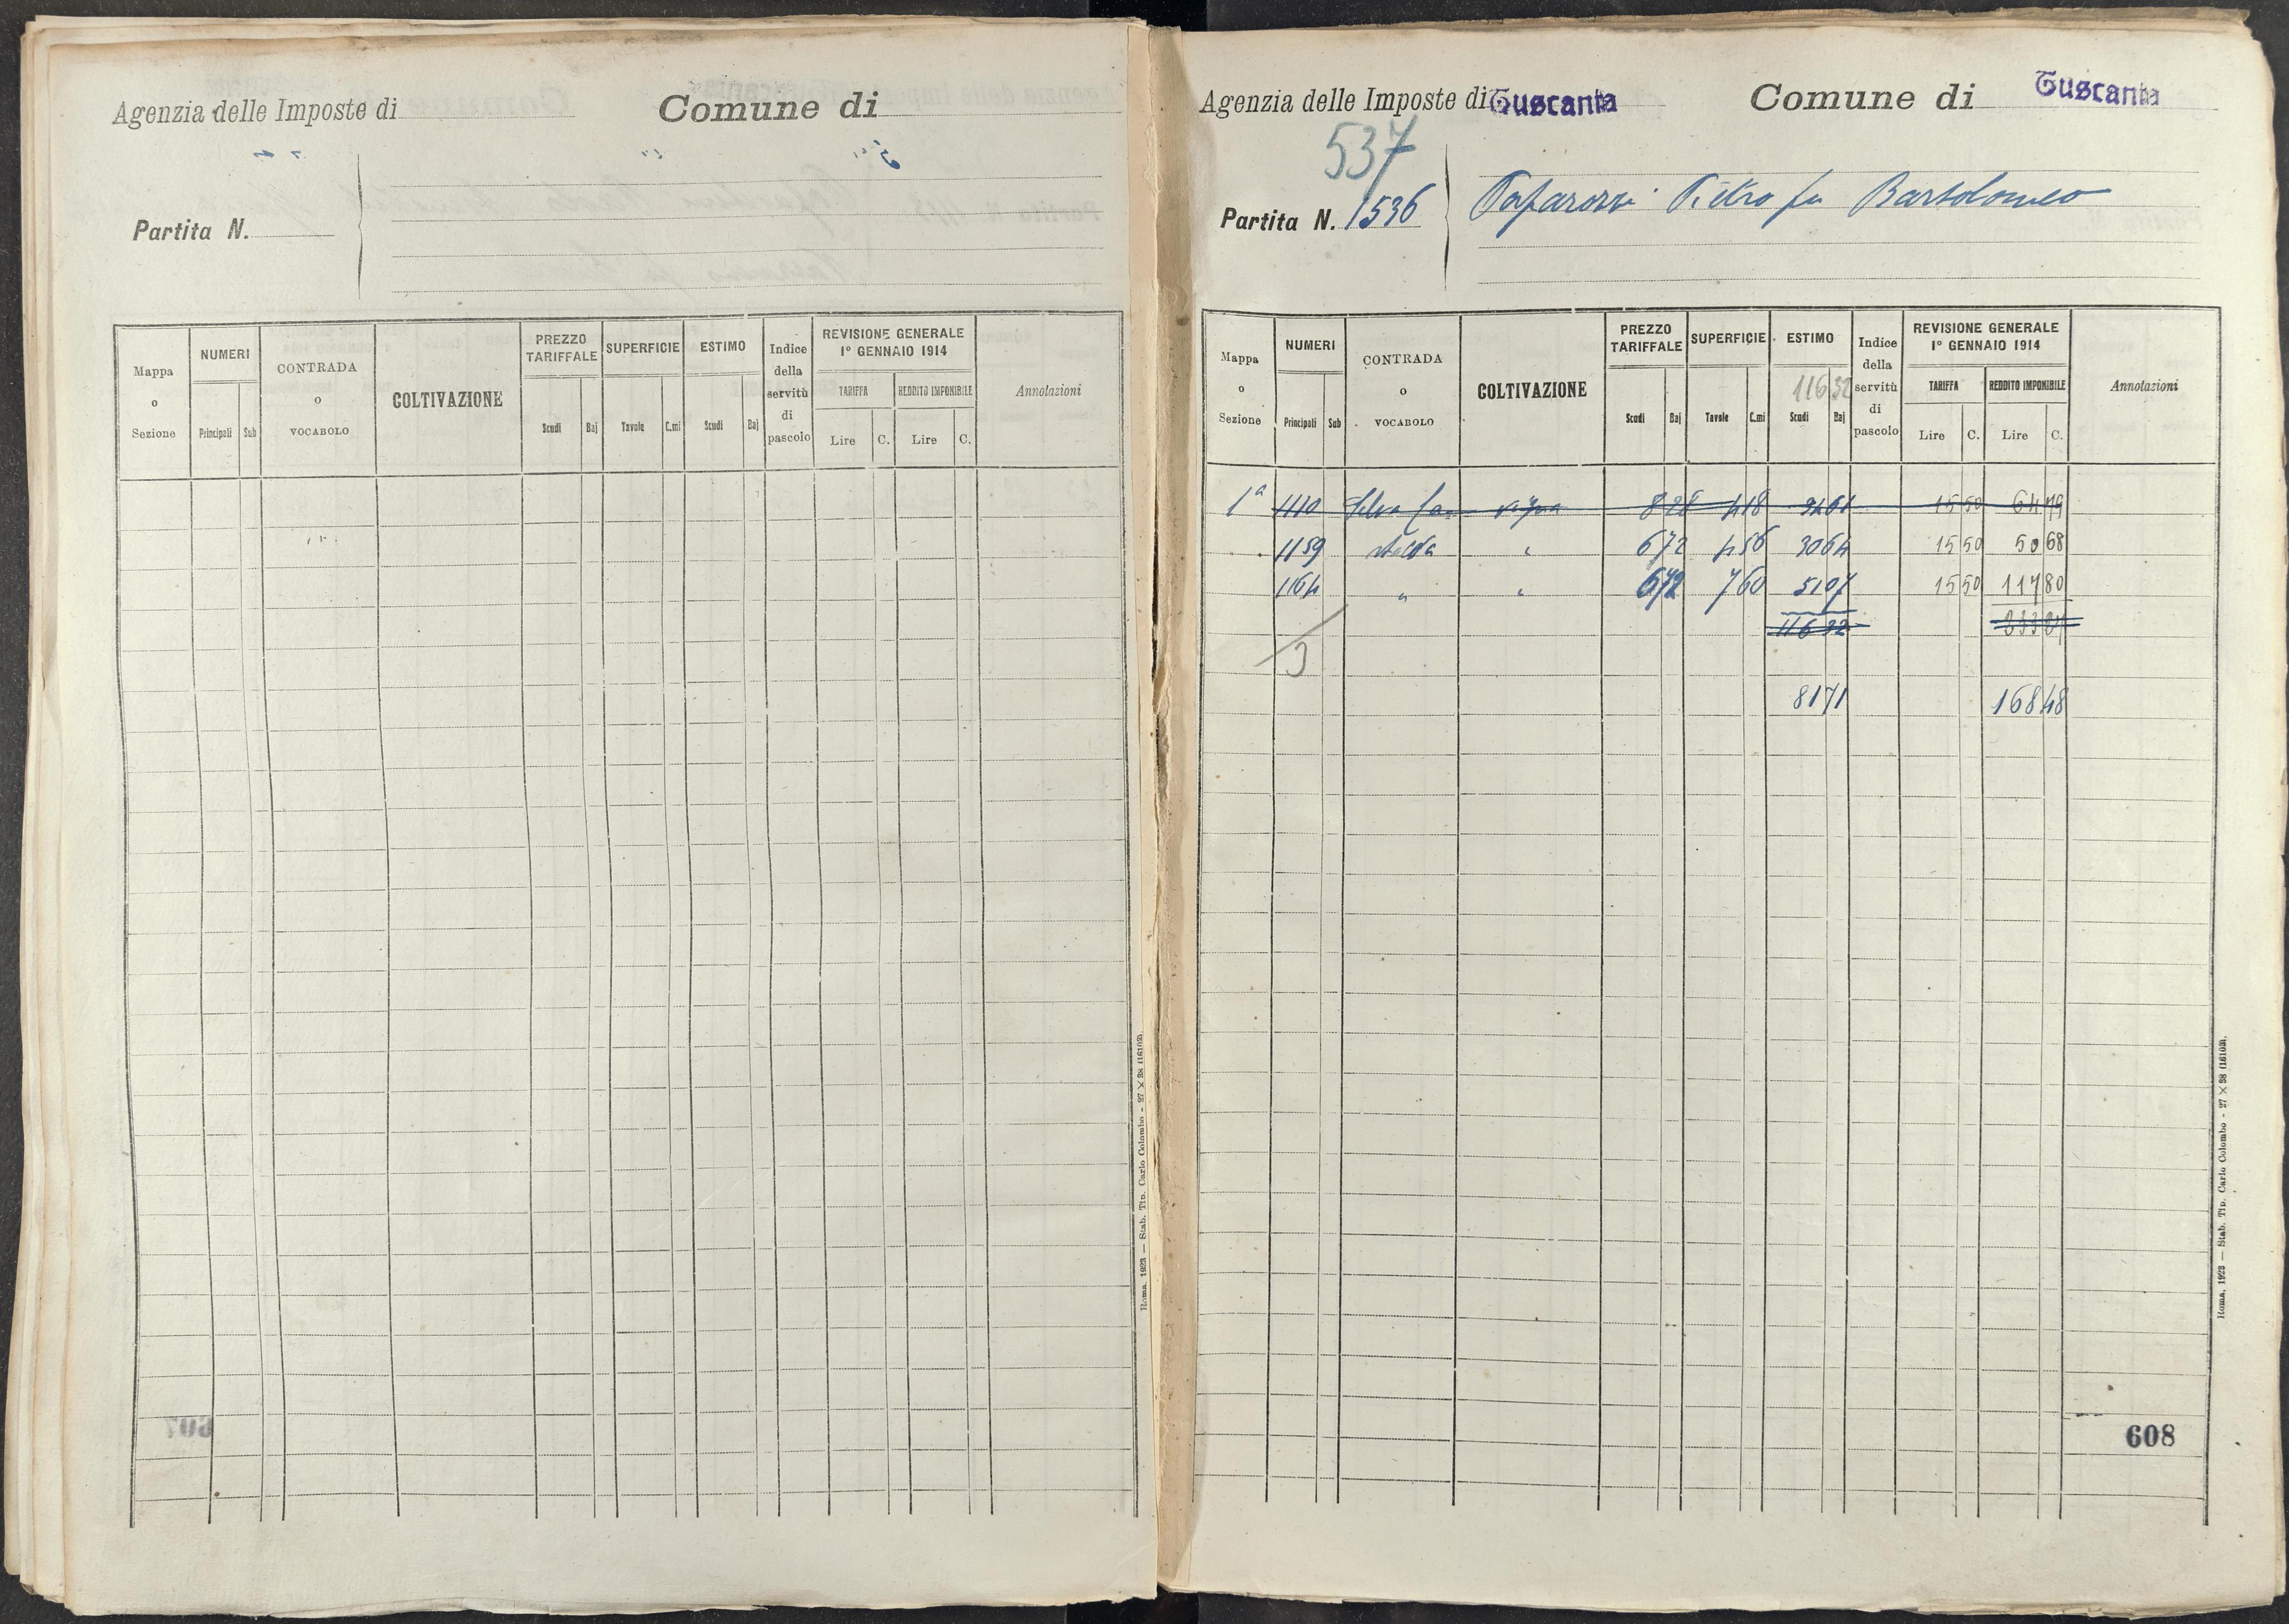 Agenzia delle Imposte di
Comune di
Partita N.
Mappa o Sezione
NUMERI
Principali
Sub
CONTRADA o VOCABOLO
COLTIVAZIONE
PREZZO TARIFFALE
Scudi
Baj
SUPERFICIE
Tavole
C.mi
ESTIMO
Scudi
Baj
Indice della servitù di pascolo
REVISIONE GENERALE
1° GENNAIO 1914
TARIFFA
REDDITO IMPONIBILE
Lire
C.
Lire
C.
Annotazioni
Roma, 1923 — Stab. Tip. Carlo Colombo - 27 × 38 (16103).
607
Agenzia delle Imposte di Tuscania
Comune di Tuscania
537
Partita N. 1536
Paparozzi Pietro fu Bartolomeo
Mappa o Sezione
NUMERI
Principali
Sub
CONTRADA o VOCABOLO
COLTIVAZIONE
PREZZO TARIFFALE
Scudi
Baj
SUPERFICIE
Tavole
C.mi
ESTIMO
116 32
Scudi
Baj
Indice della servitù di pascolo
REVISIONE GENERALE
1° GENNAIO 1914
TARIFFA
REDDITO IMPONIBILE
Lire
C.
Lire
C.
Annotazioni
1ª 1110 Selva vigna 8 28 4 18 34 61 15 50 64 79
1159 " 6 72 4 56 30 64 15 50 50 68
1164 " " 6 72 7 60 51 07 15 50 117 80
116 32 233 27
81 71 168 48
Roma, 1923 — Stab. Tip. Carlo Colombo - 27 × 38 (16103).
608